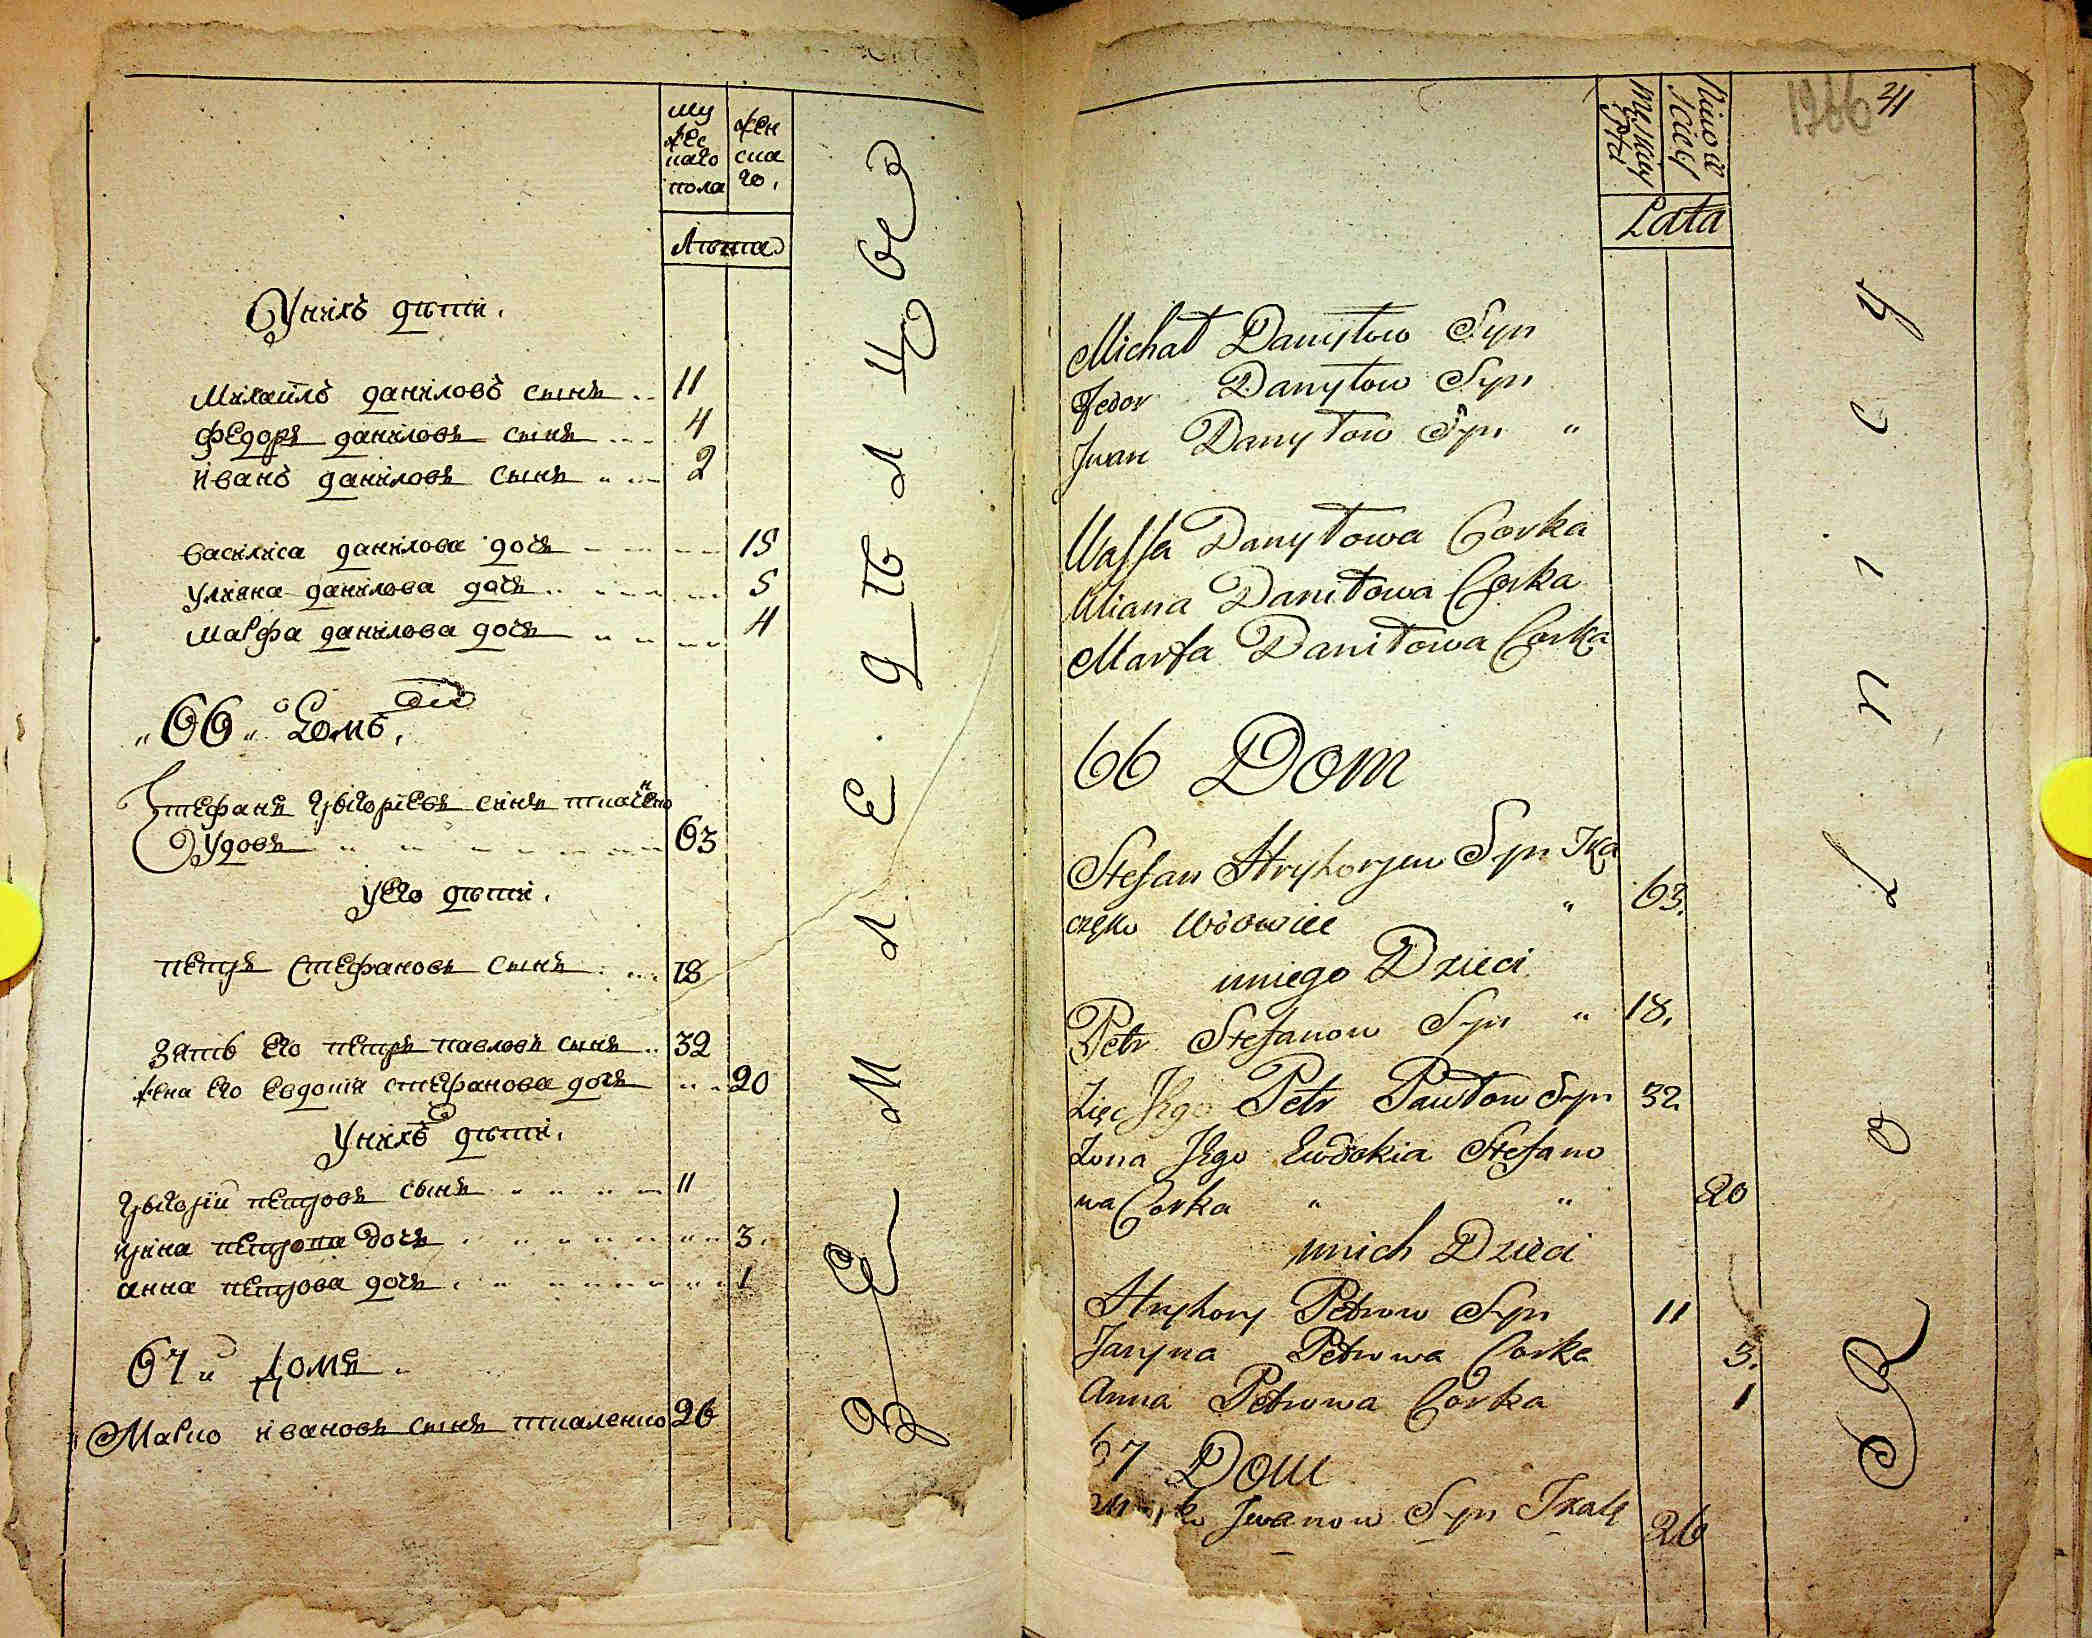 му
жес
каго
пола
жен
ска
го,
Лѣта
Унихъ дѣти.
Михайлъ даниловъ сынъ 11
федоръ даниловъ сынъ 4
иванъ даниловъ сынъ 2
василиса данилова дочь 15
улияна данилова дочь 5
марфа данилова дочь 4
"66" Домъ,
Стефанъ григориевъ сынъ ткаченко
Удовъ 63
Уего дѣти.
петръ Стефановъ сынъ 18
Зять его петръ павловъ сынъ 32
жена его евдокия стефанова дочь 20
Унихъ дѣти.
григорий петровъ сынъ 11
ирина петрова дочь 3.
анна петрова дочь 1
67 й Домъ
Марко ивановъ сынъ ткаленко 26
ЗЕМЛЕДѢЛЦОВ
1266 21
męskay
Płci
Lata
Michał Danyłow Syn
Fedor Danyłow Syn
Jwan Danyłow Syn "
Wassa Danyłowa Corka
Uliana Daniłowa Corka
Marfa Daniłowa Corka
66 Dom
Stefan Hryhorjew Syn Tka
czeko Udowiec " 63.
uniego Dzieci
Petr Stefanow Syn " 18.
Zięć Jego Petr Pawłow Syn 32
Zona Jego Ewdokia Stefano
wa Corka " " 20
unich Dzieci
Hryhory Petrow Syn 11
Jaryna Petrowa Corka 3.
Anna Petrowa Corka 1
67 Dom
Jwanow Syn Tkale 26
Rolnicy